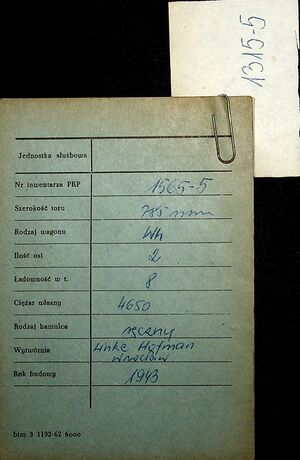 1315-5
Jednostka służbowa
Nr inwentarza PKP 1565-5
Szerokość toru 785 mm
Rodzaj wagonu Wh
Ilość osi 2
Ładowność w t. 8
Ciężar własny 4650
Rodzaj hamulca ręczny
Wytwórnia Linke Hofman
Wrocław
Rok budowy 1943
btm 3 1192-62 6000